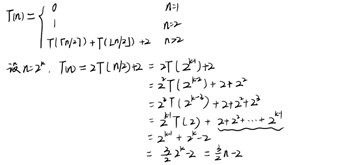 T(n) = { 0 n=1
1 n=2
T(⌈n/2⌉) + T(⌊n/2⌋) + 2 n>2
设 n=2^k, T(n) = 2T(n/2)+2 = 2T(2^{k-1})+2
= 2^2 T(2^{k-2}) + 2 + 2^2
= 2^3 T(2^{k-3}) + 2 + 2^2 + 2^3
= 2^{k-1} T(2) + 2 + 2^2 + ... + 2^{k-1}
= 2^{k-1} + 2^k - 2
= 3/2 2^k - 2 = 3/2 n - 2